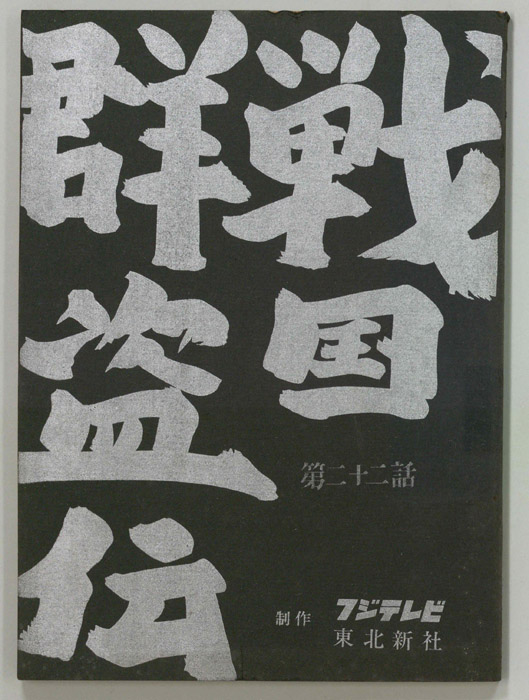 戦国
群盗伝
第二十二話
制作
フジテレビ
東北新社